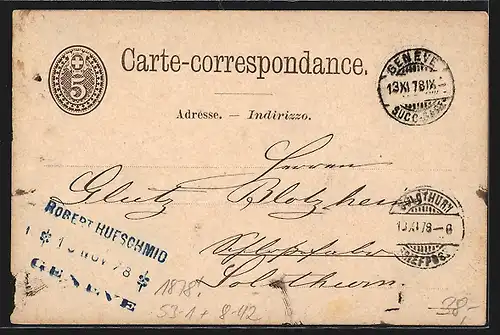 5
Carte-correspondance.
Adresse. — Indirizzo.
GENEVE
13 XI 78 IX
SUCC.
Herren
Glutz Blotzheim
Solothurn.
SOLOTHURN
13 XI 78 – 6
BRIEFPOST.
ROBERT HUFSCHMID
13 NOV 78
GENEVE
1878.
S3-1+ 8-42
38,-